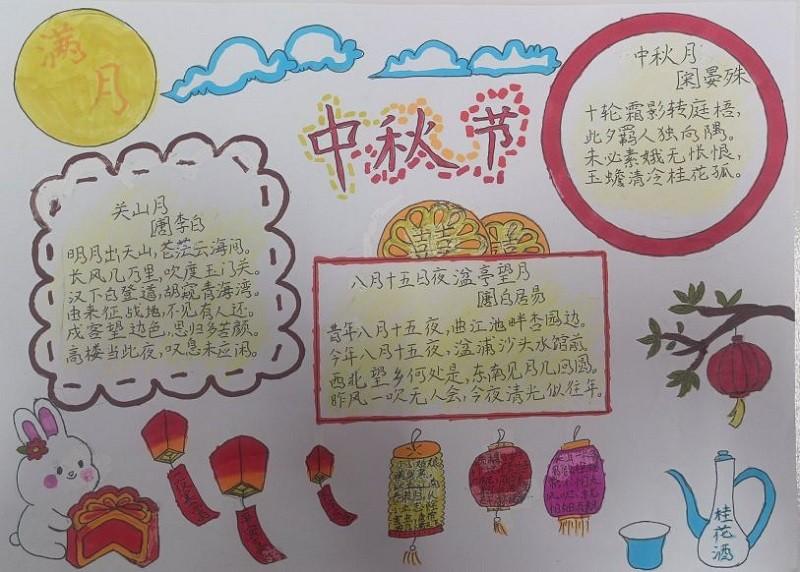 满月
中秋节
中秋月
[宋]晏殊
十轮霜影转庭梧,
此夕羁人独向隅。
未必素娥无怅恨,
玉蟾清冷桂花孤。
关山月
[唐]李白
明月出天山,苍茫云海间。
长风几万里,吹度玉门关。
汉下白登道,胡窥青海湾。
由来征战地,不见有人还。
戍客望边色,思归多苦颜。
高楼当此夜,叹息未应闲。
囍
八月十五日夜湓亭望月
[唐]白居易
昔年八月十五夜,曲江池畔杏园边。
今年八月十五夜,湓浦沙头水馆前。
西北望乡何处是,东南见月几回圆。
昨风一吹无人会,今夜清光似往年。
桂花酒